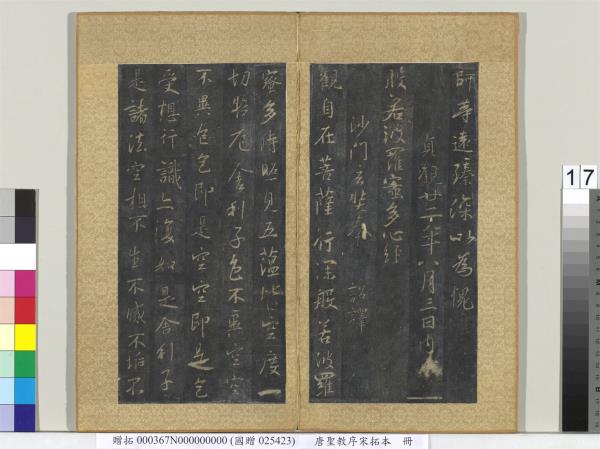 師等遠臻深以為愧
貞觀廿二年八月三日內
般若波羅蜜多心經
沙門玄奘奉 詔譯
觀自在菩薩行深般若波羅
蜜多時照見五蘊皆空度一
切苦厄舍利子色不異空空
不異色色即是空空即是色
受想行識亦復如是舍利子
是諸法空相不生不滅不垢不
17
贈拓 000367N000000000 (國贈 025423) 唐聖教序宋拓本 冊